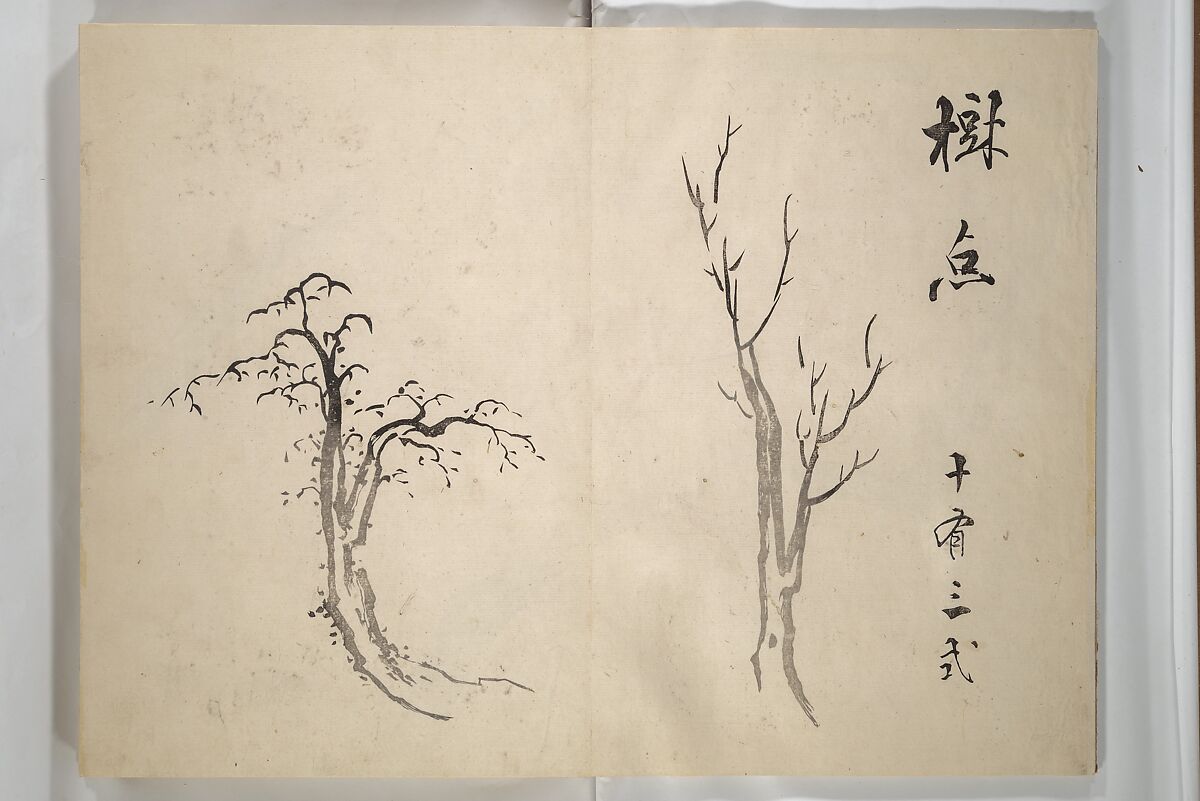 樹点十有三式